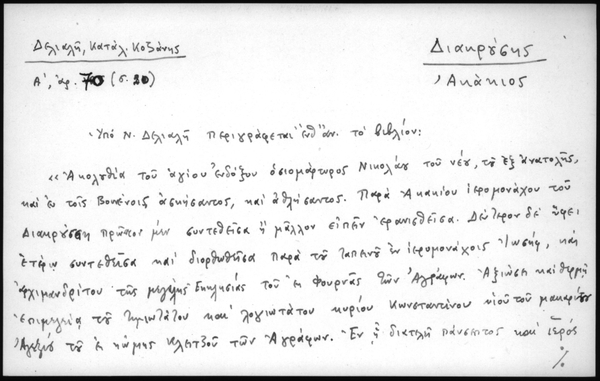 Δελιαλῆ, Κατάλ. Κοζάνης
Διακρούσης
Α', ἀρ. 70 (σ. 20)
Ἀκάκιος
Ὑπὸ Ν. Δελιαλῆ περιγράφεται ἐνθ' ἀν. τὸ βιβλίον:
«Ἀκολουθία τοῦ ἁγίου ἐνδόξου ὁσιομάρτυρος Νικολάου τοῦ νέου, τοῦ ἐξ Ἀνατολῆς,
καὶ ἐν τοῖς Βουνένοις ἀσκήσαντος, καὶ ἀθλήσαντος. Παρὰ Ἀκακίου ἱερομονάχου τοῦ
Διακρούση πρῶτον μὲν συντεθεῖσα ἢ μᾶλλον εἰπεῖν ἐρανισθεῖσα. Δεύτερον δὲ
συντεθεῖσα καὶ διορθωθεῖσα παρὰ τοῦ ταπεινοῦ ἐν ἱερομονάχοις Ἰωσήφ, καὶ
ἀρχιμανδρίτου τῆς μεγάλης Ἐκκλησίας τοῦ ἐκ Φουρνᾶς τῶν Ἀγράφων. Ἀξιώσει καὶ θερμῇ
ἐπιμελείᾳ τοῦ τιμιωτάτου καὶ λογιωτάτου κυρίου Κωνσταντίνου υἱοῦ τοῦ μακαρίτου
τοῦ ἐκ κώμης Κλειτζοῦ τῶν Ἀγράφων. Ἐν ᾗ διατελῆ πάνσεπτος καὶ ἱερὸς
%